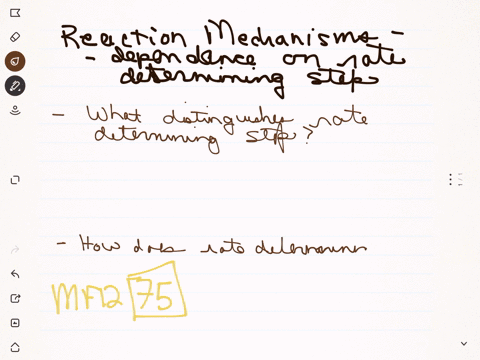 Reaction Mechanisms -
- dependance on rate
determining step
- What distinguishes rate
determining step?
- How does rate determinen
MF12 75